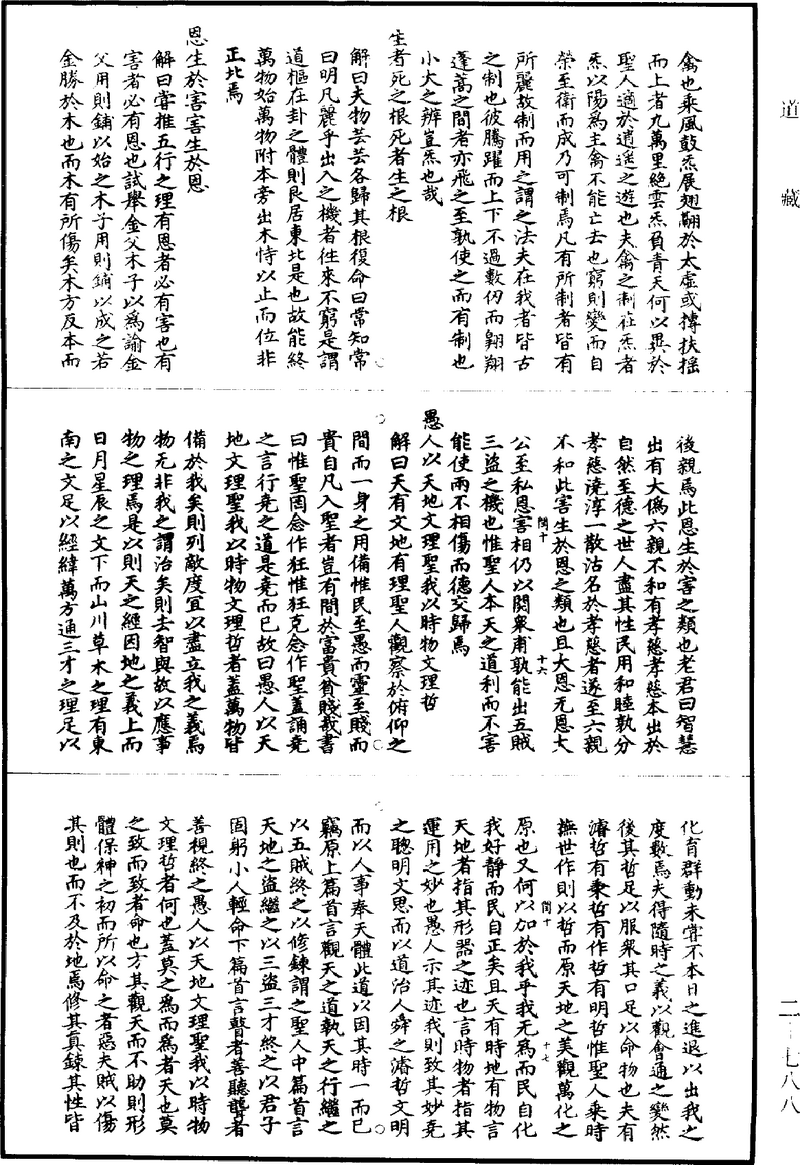 道藏
禽也乘風鼓炁展翅翮於太虛或摶扶搖
而上者九萬里絕雲炁負青天何以異於
聖人適於逍遙之遊也夫禽之制在炁者
炁以陽為主禽不能亡去也窮則變而自
榮至衛而成乃可制焉凡有所制者皆有
所麗故制而用之謂之法夫在我者皆古
之制也彼騰躍而上下不過數仞而翱翔
蓬蒿之間者亦飛之至孰使之而有制也
小大之辨豈炁也哉
生者死之根死者生之根
解曰夫物芸芸各歸其根復命曰常知常
曰明凡麗乎出入之機者往來不窮是謂
道樞在卦之體則艮居東北是也故能終
萬物始萬物附本旁出木恃以止而位非
正北焉
恩生於害害生於恩
解曰嘗推五行之理有恩者必有害也有
害者必有恩也試舉金父木子以為諭金
父用則鋪以始之木子用則鋪以成之若
金勝於木也而木有所傷矣木方反本而
後親焉此恩生於害之類也老君曰智慧
出有大偽六親不和有孝慈孝慈本出於
自然至德之世人盡其性民用和睦孰分
孝慈澆淳一散沽名於孝慈者遂至六親
不和此害生於恩之類也且大恩无恩大
公至私恩害相仍以閱眾甫孰能出五賊
閏十 十六
三盜之機也惟聖人本天之道利而不害
能使兩不相傷而德交歸焉
愚人以天地文理聖我以時物文理哲
解曰天有文地有理聖人觀察於俯仰之
間而一身之用備惟民至愚而靈至賤而
貴自凡入聖者豈有間於富貴貧賤哉書
曰惟聖罔念作狂惟狂克念作聖蓋誦堯
之言行堯之道是堯而已故曰愚人以天
地文理聖我以時物文理哲者蓋萬物皆
備於我矣則列敵度宜以盡立我之義焉
物无非我之謂治矣則去智與故以應事
物之理焉是以則天之經因地之義上而
日月星辰之文下而山川草木之理有東
南之文足以經緯萬方通三才之理足以
化育群動未嘗不本日之進退以出我之
度數焉夫得隨時之義以觀會通之變然
後其哲足以服眾其口足以命物也夫有
濬哲有秉哲有作哲有明哲惟聖人乘時
撫世作則以哲而原天地之美觀萬化之
原也又何以加於我乎我无為而民自化
閏十 十七
我好靜而民自正矣且天有時地有物言
天地者指其形器之迹也言時物者指其
運用之妙也愚人示其迹我則致其妙堯
之聰明文思而以道治人舜之濬哲文明
而以人事奉天體此道以因其時一而已
竊原上篇首言觀天之道執天之行繼之
以五賊終之以修鍊謂之聖人中篇首言
天地之盜繼之以三盜三才終之以君子
固躬小人輕命下篇首言瞽者善聽聾者
善視終之愚人以天地文理聖我以時物
文理哲者何也蓋莫之為而為者天也莫
之致而致者命也方其觀天而不助則形
體保神之初而所以命之者惡夫賊以傷
其則也而不及於地焉修其真鍊其性皆
二十七八八